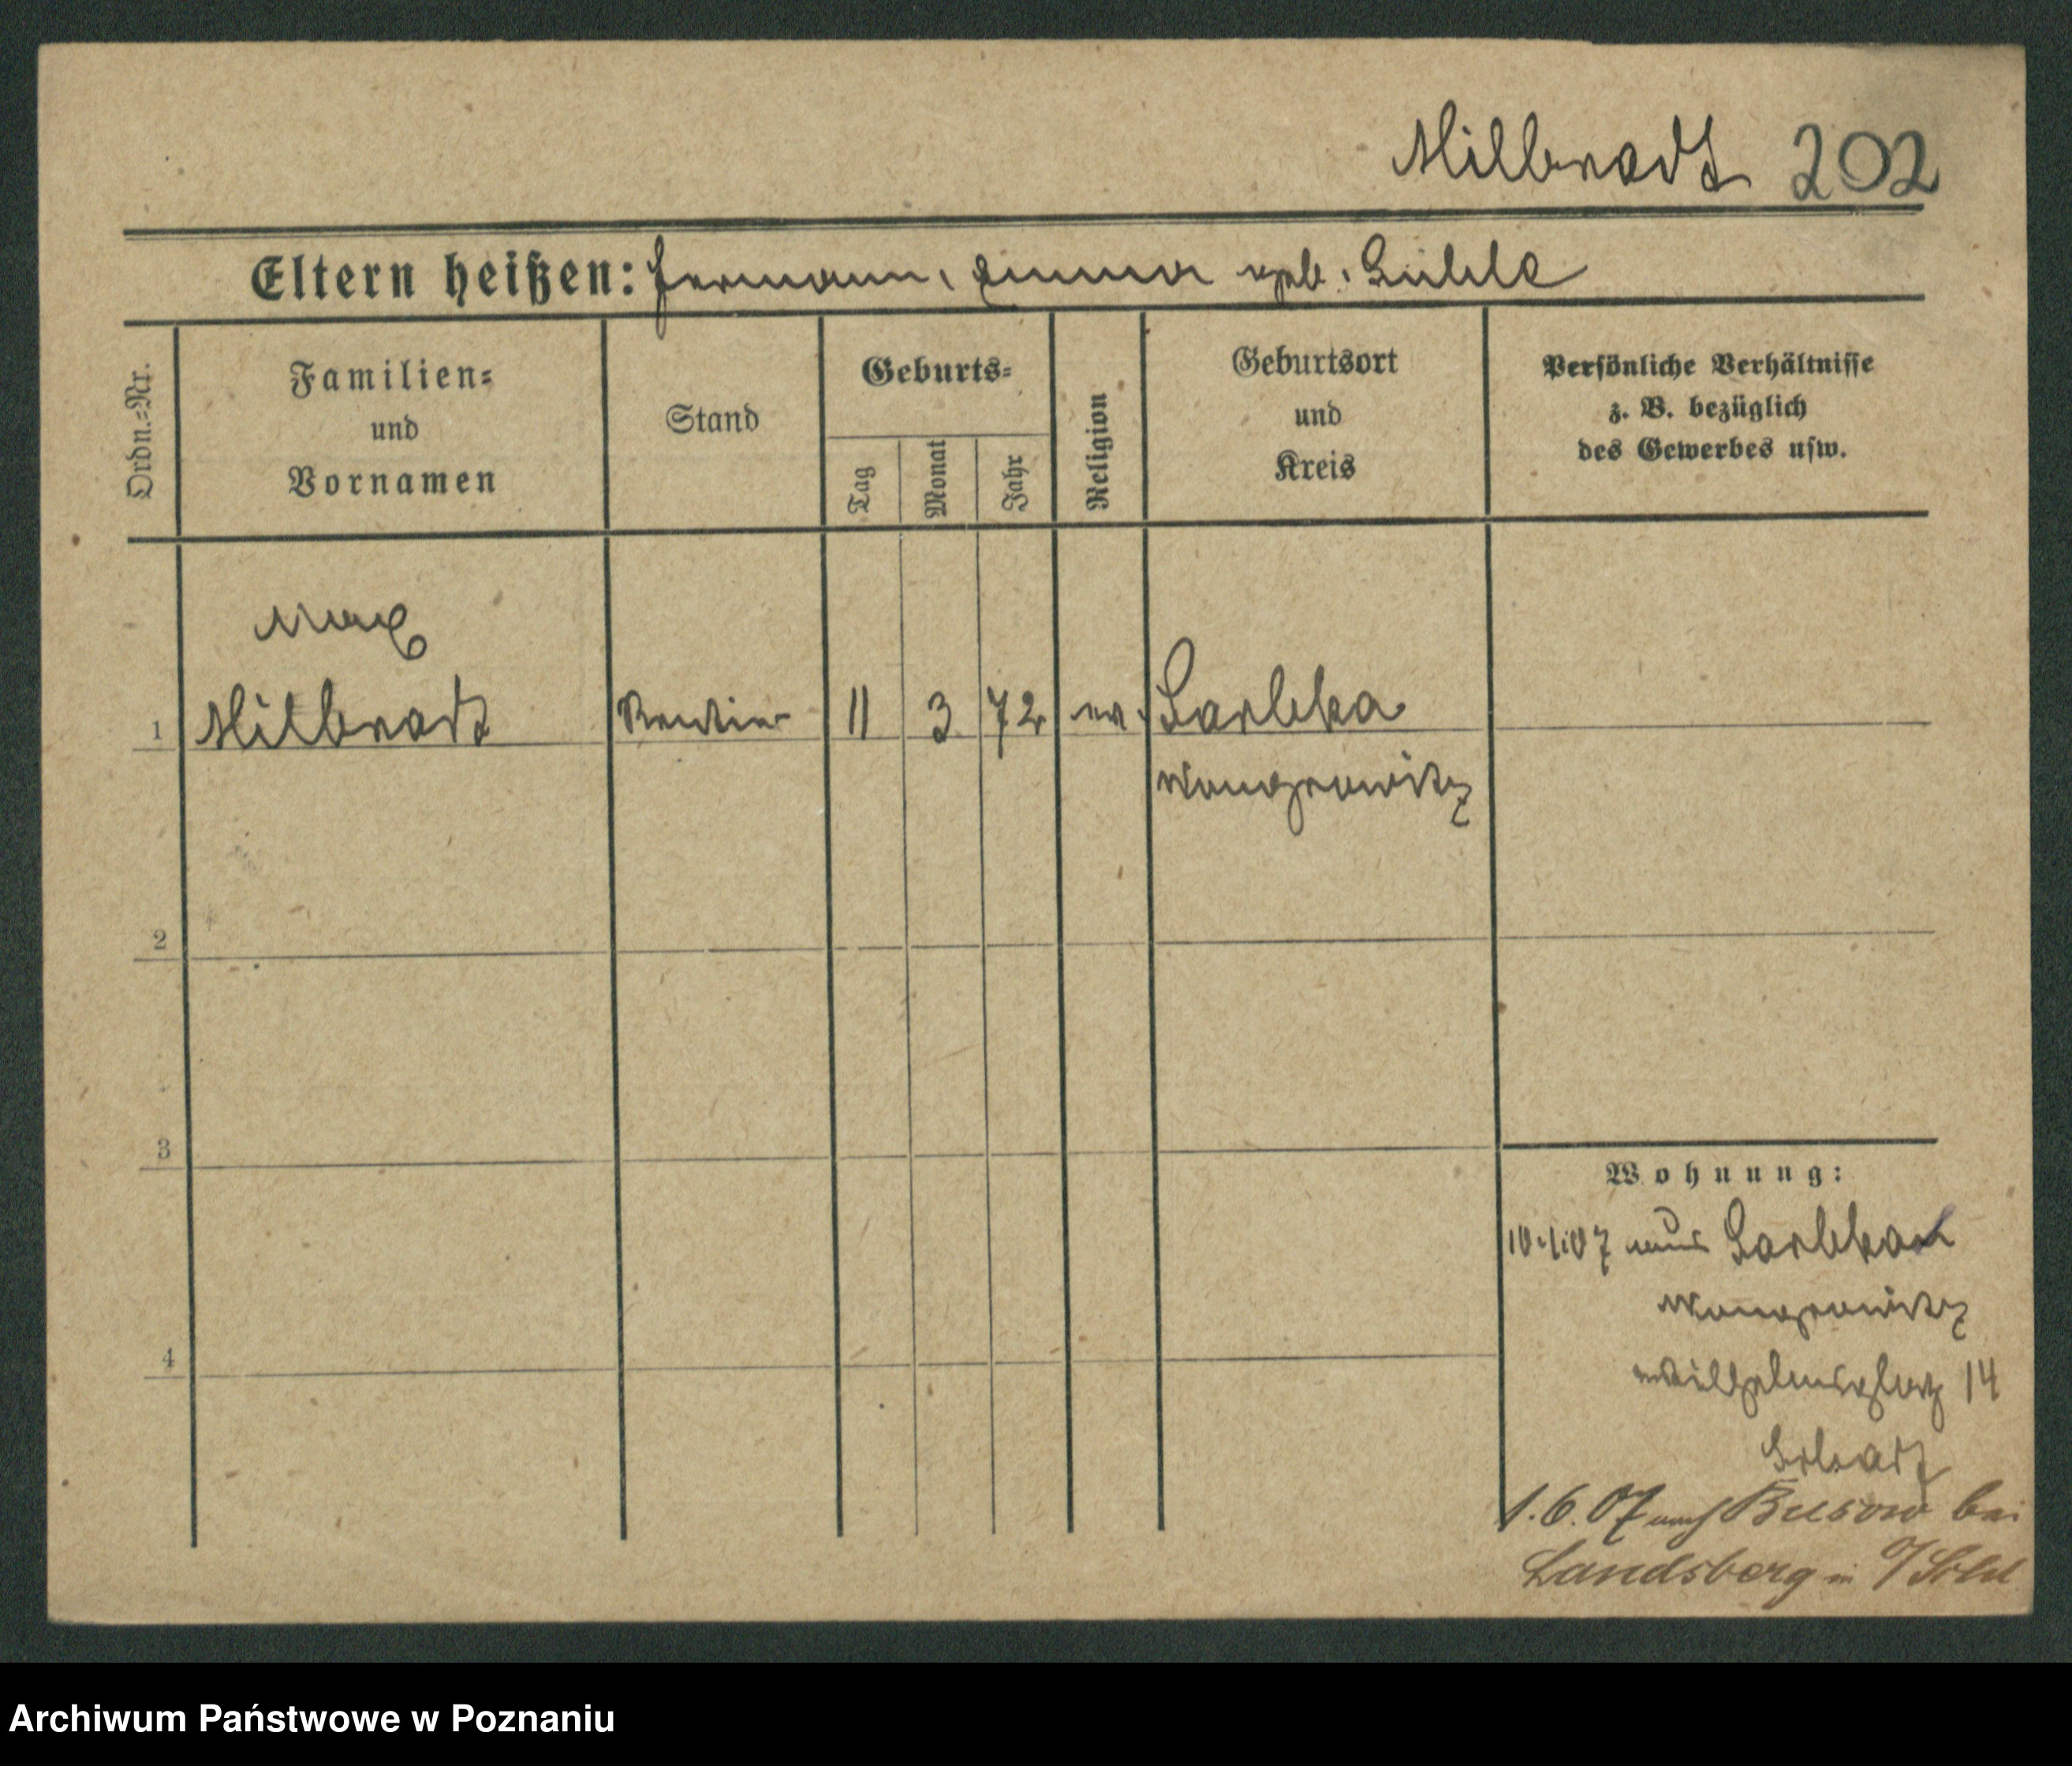 Milbradt 202
Eltern heißen: Hermann, Emma geb. Lühle
Ordn.=Nr.
Familien=
und
Vornamen
Stand
Geburts=
Tag
Monat
Jahr
Religion
Geburtsort
und
Kreis
Persönliche Verhältnisse
z. B. bezüglich
des Gewerbes usw.
Max
1 Milbradt Rentier 11 3 72 ev. Sarbka
Wongrowitz
2
3
4
Wohnung:
10.4.07 aus Sarbka
Wongrowitz
Wilhelmsplatz 14
1.6.07 nach Busow bei
Landsberg in O/Schl
Archiwum Państwowe w Poznaniu